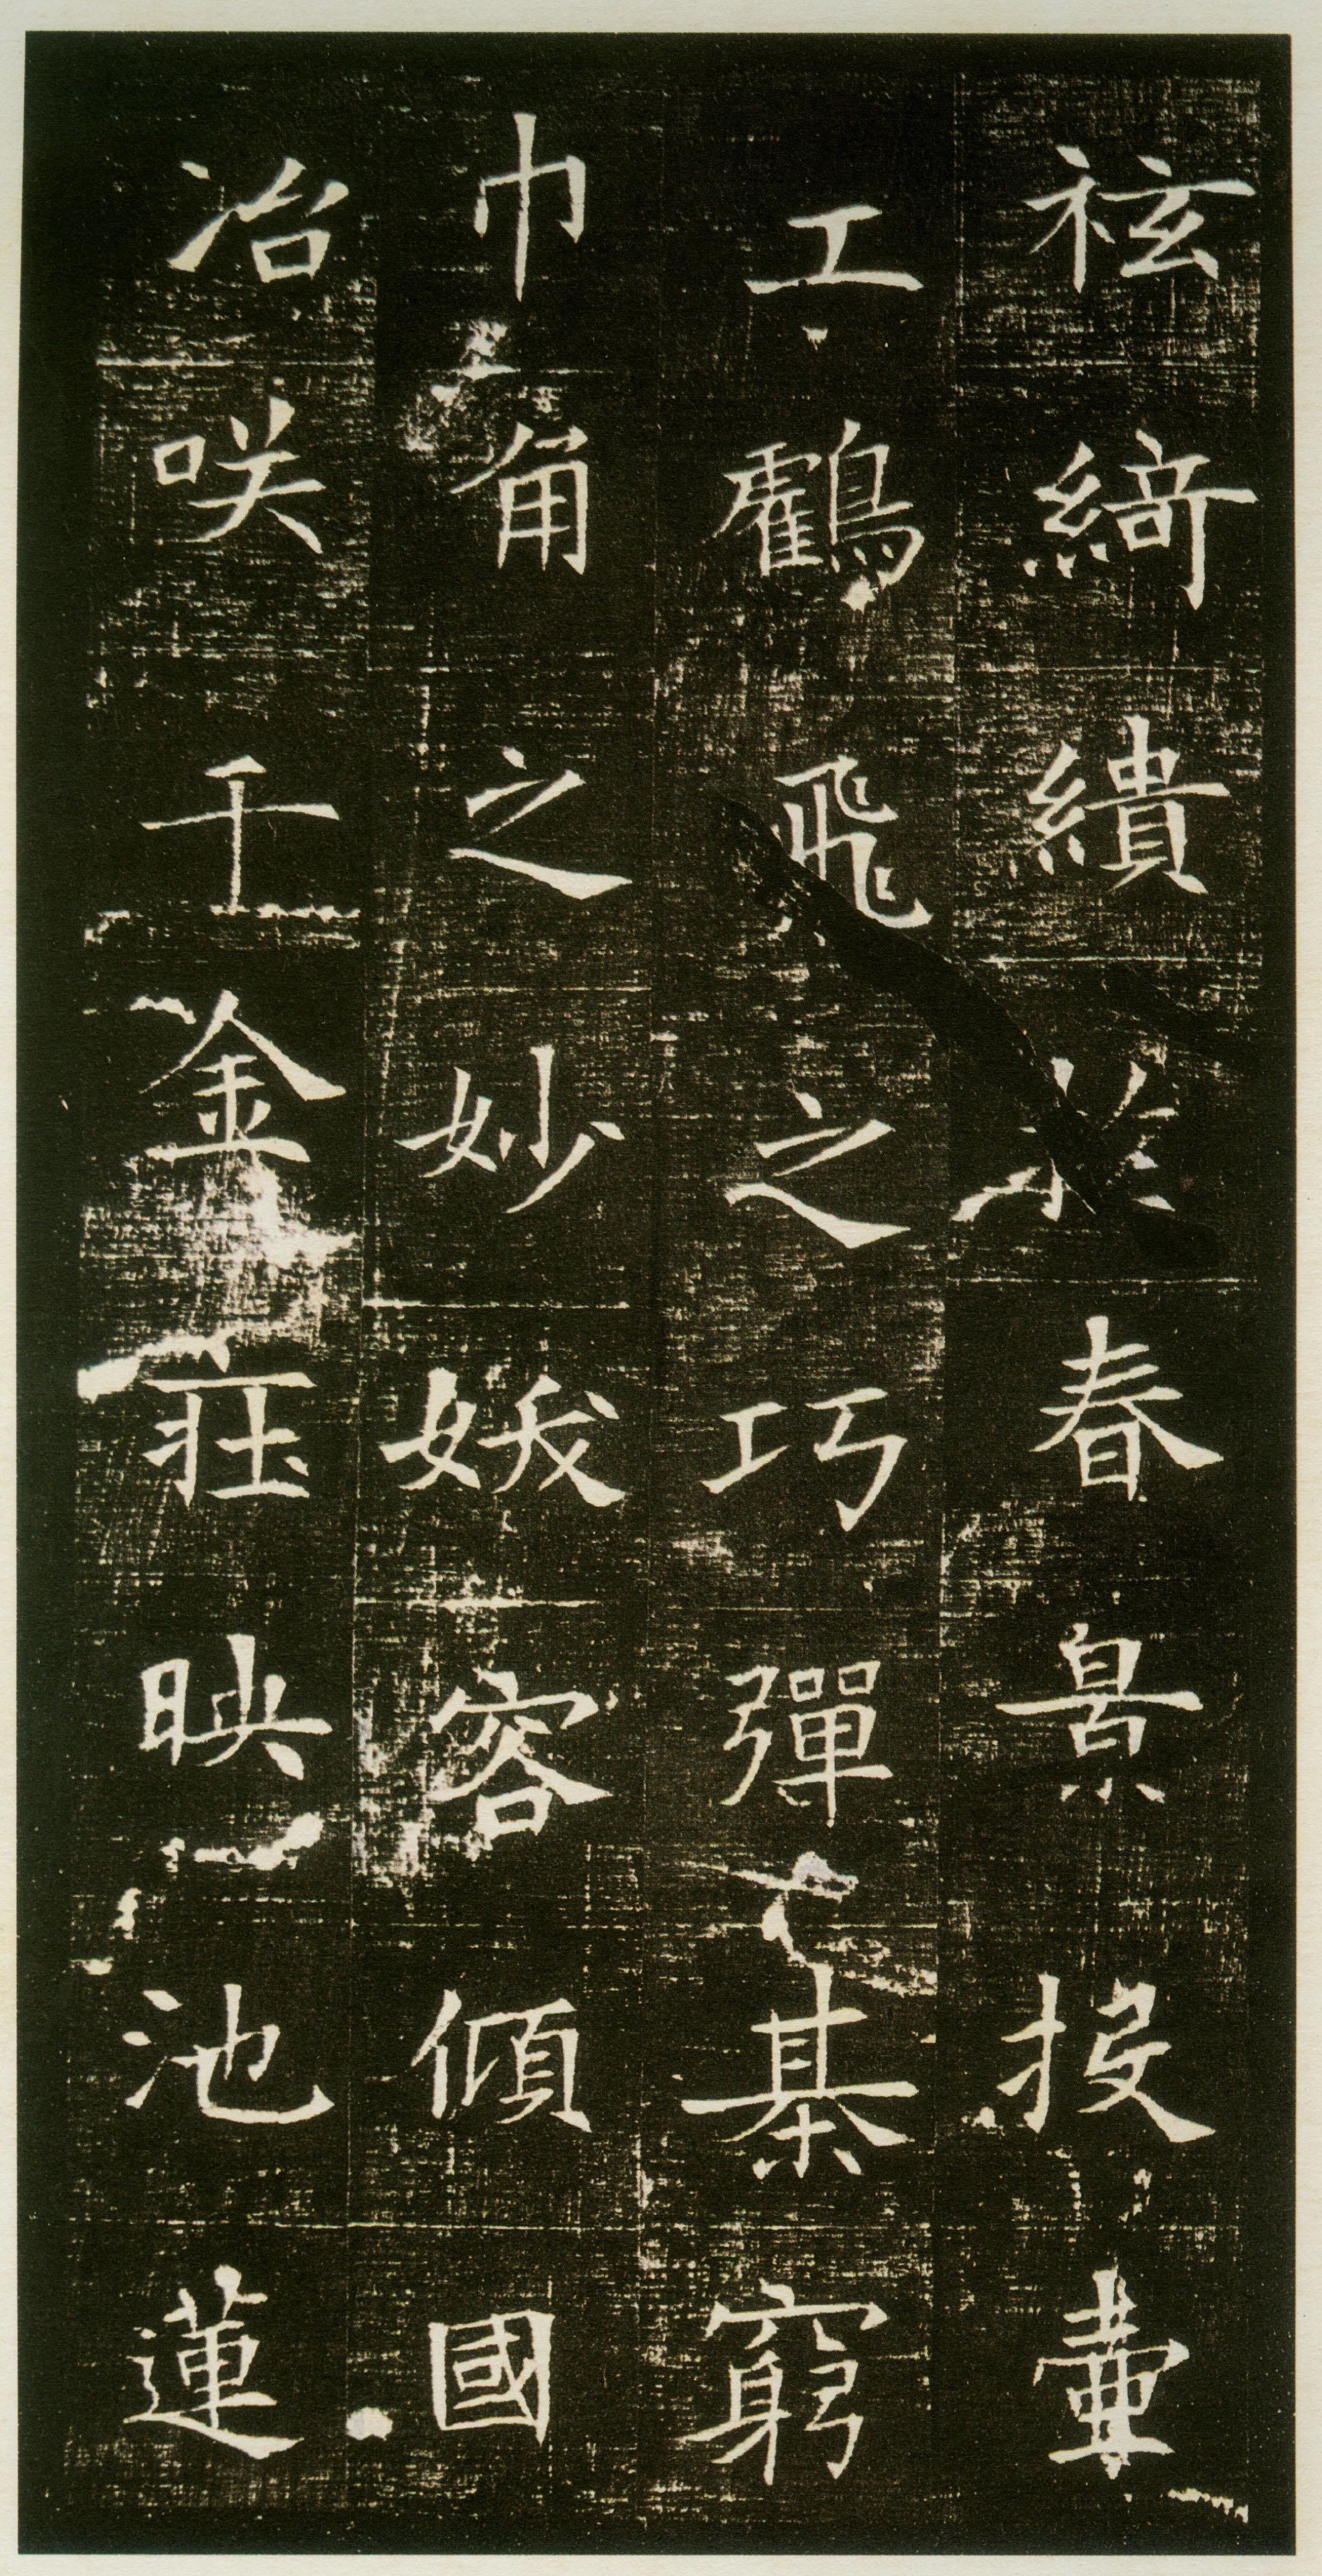 袨綺繢於春景投壷
工鸖飛之巧彈棊窮
巾角之妙妖容傾國
冶咲千金莊映池蓮